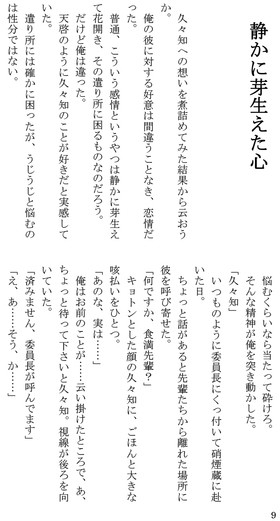 静かに芽生えた心
久々知への想いを煮詰めてみた結果から云おう
か。
俺の彼に対する好意は間違うことなき、恋情だ
った。
普通、こういう感情というやつは静かに芽生え
て花開き、その遣り所に困るものなのだろう。
だけど俺は違った。
天啓のように久々知のことが好きだと実感して
いた。
遣り所には確かに困ったが、うじうじと悩むの
は性分ではない。
悩むくらいなら当たって砕けろ。
そんな精神が俺を突き動かした。
「久々知」
いつものように委員長にくっ付いて硝煙蔵に赴
いた日。
ちょっと話があると先輩たちから離れた場所に
彼を呼び寄せた。
「何ですか、食満先輩？」
キョトンとした顔の久々知に、ごほんと大きな
咳払いをひとつ。
「あのな、実は……」
俺はお前のことが……云い掛けたところで、あ、
ちょっと待って下さいと久々知。視線が後ろを向
いていた。
「済みません、委員長が呼んでます」
「え、あ……そう、か……」
9